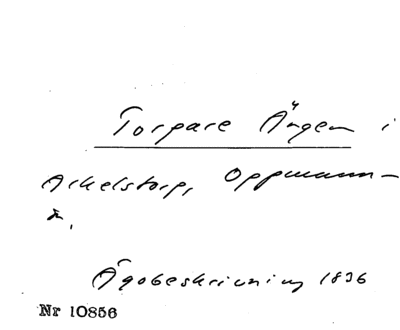 Torpare Ängen i
Arkelstorp, Oppmann-
a.
Ägobeskrivning 1836
Nr 10856